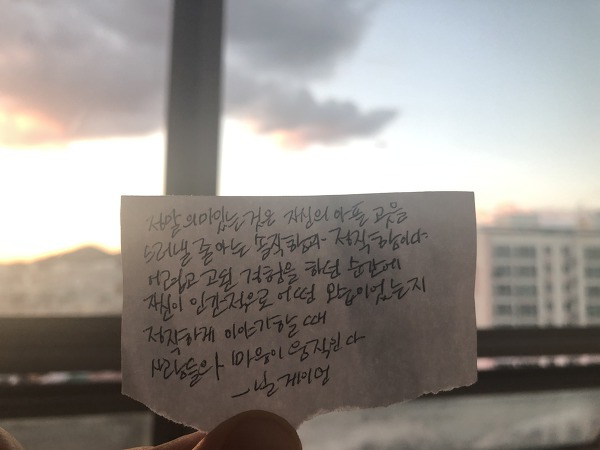 정말 의미있는 것은 자신의 아픈 곳을
드러낼 줄 아는 솔직함과 정직함이다
어렵고 고된 경험을 하던 순간에
자신이 인간적으로 어떤 모습이었는지
정직하게 이야기할 때
사람들의 마음이 움직인다
- 닐 게이먼